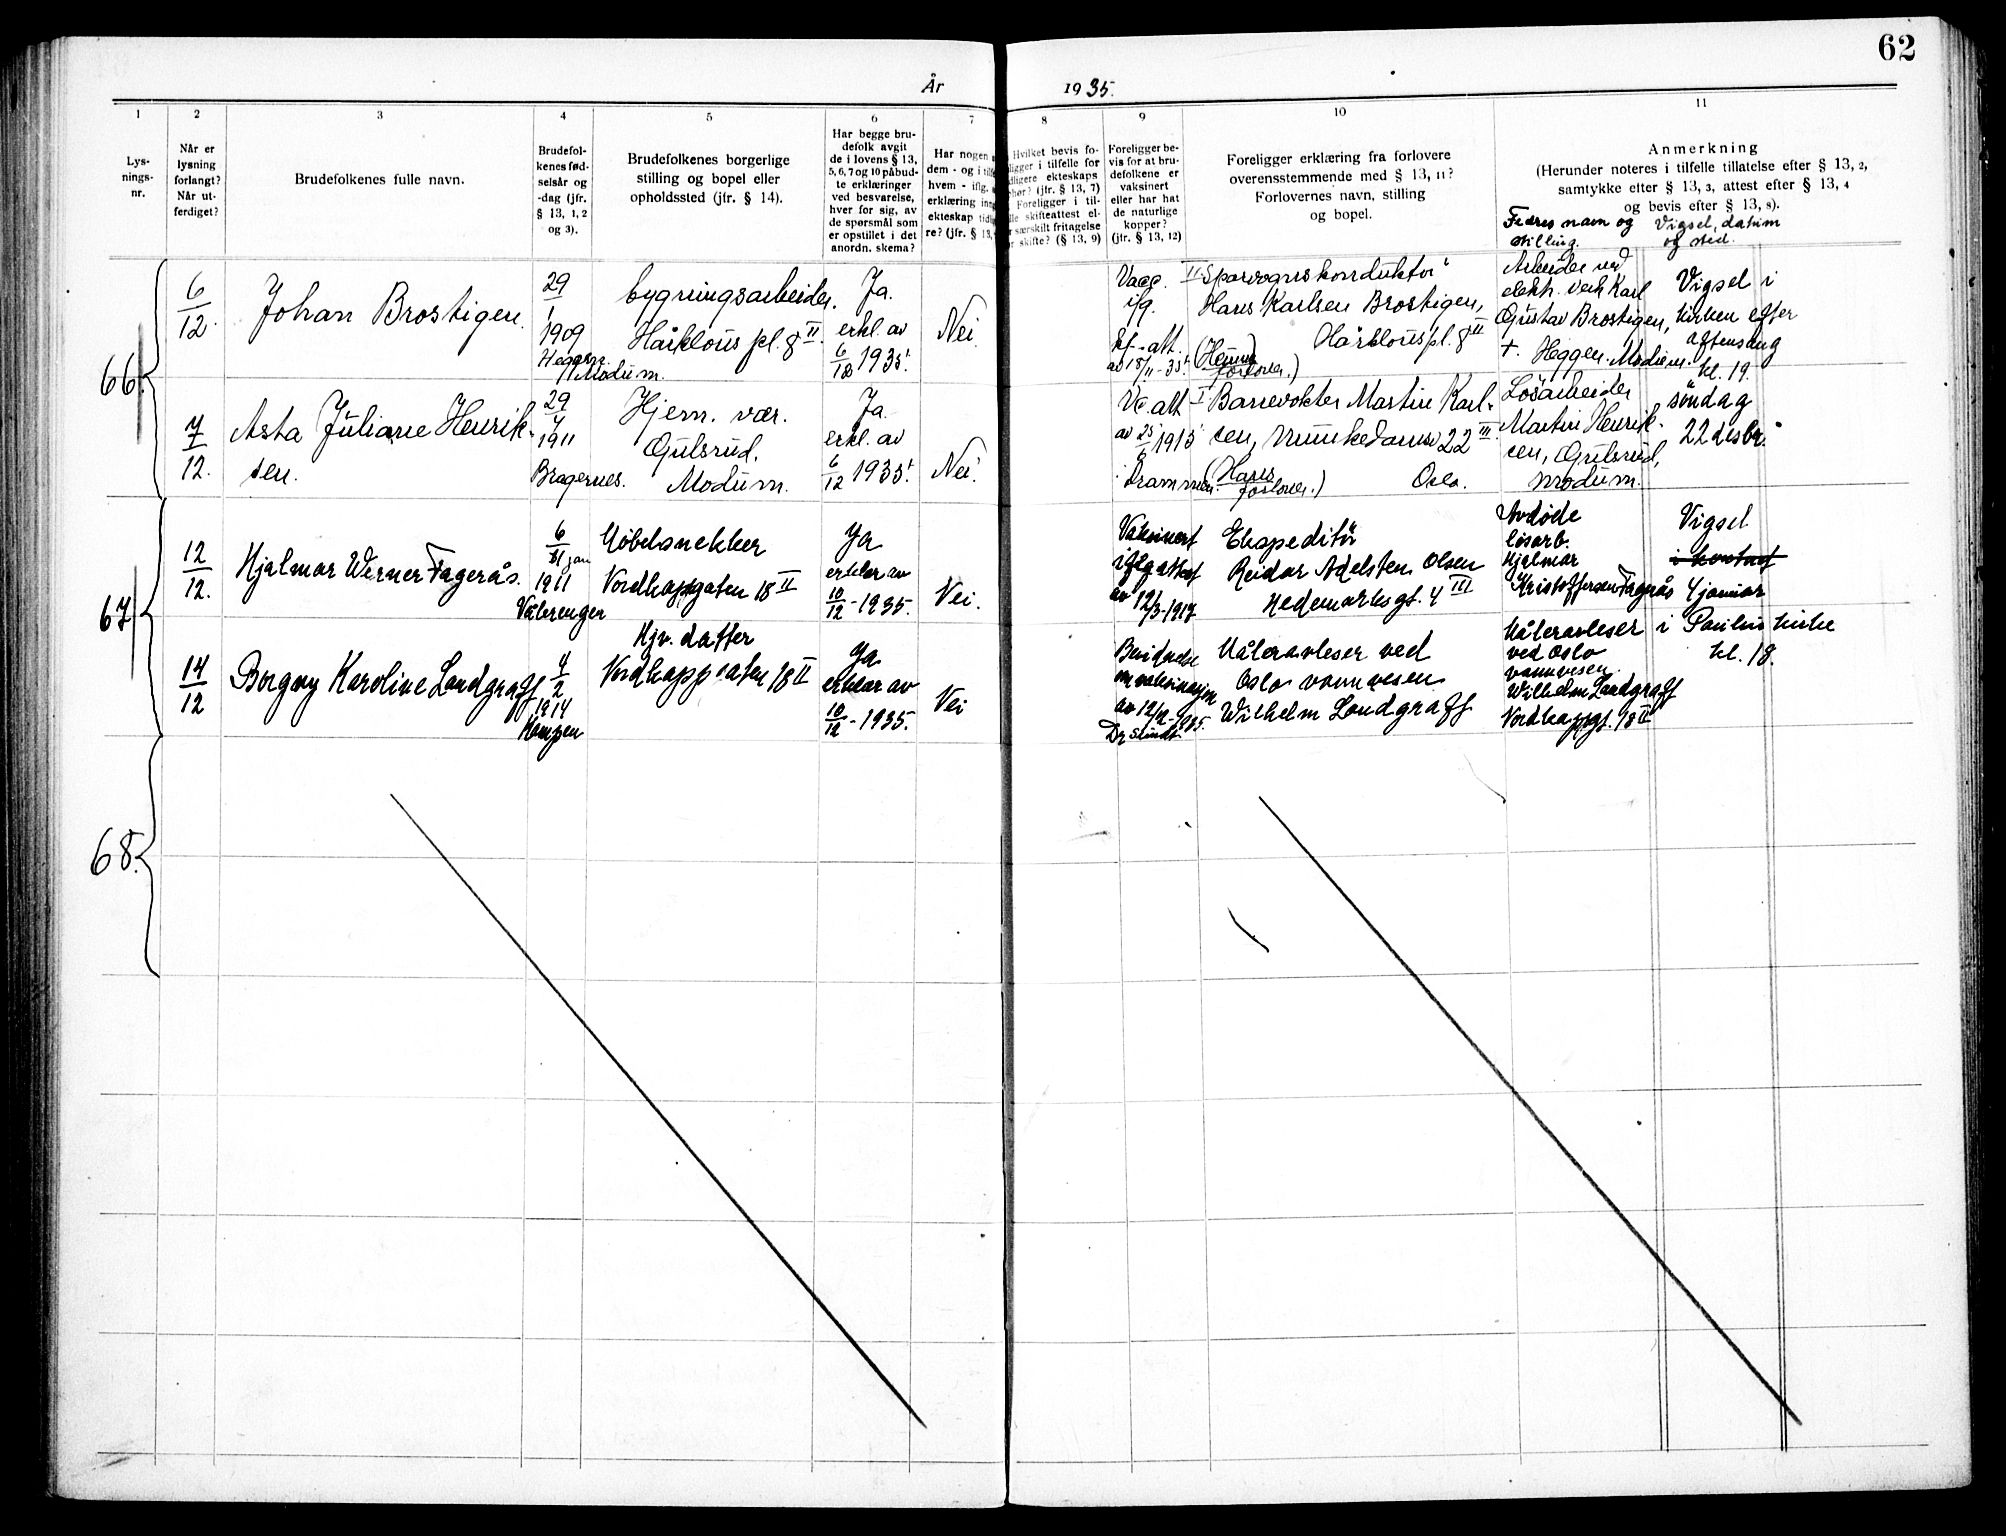 62
År 1935.
1 2 3 4 5 6 7 8 9 10 11
Lys-
nings-
nr.
Når er
lysning
forlangt?
Når ut-
ferdiget?
Brudefolkenes fulle navn.
Brudefol-
kenes fød-
selsår og
-dag (jfr.
§ 13, 1, 2
og 3).
Brudefolkenes borgerlige
stilling og bopel eller
opholdssted (jfr. § 14).
Har begge bru-
defolk avgit
de i lovens § 13,
5, 6, 7 og 10 påbud-
te erklæringer
ved besvarelse,
hver for sig, av
de spørsmål som
er opstillet i det
anordn. skema?
Har nogen
dem - og i
hvem - iflg.
erklæring
ekteskap
re? (jfr. § 13,
Hvilket bevis fo-
ligger i tilfelle for
ekteskaps
(jfr. § 13, 7)
Foreligger i til-
skifteattest el-
særskilt fritagelse
skifte? (§ 13, 9)
Foreligger be-
vis for at bru-
defolkene er
vaksinert
eller har hat
de naturlige
kopper?
(jfr. § 13, 12)
Foreligger erklæring fra forlovere
overensstemmende med § 13, 11?
Forlovernes navn, stilling
og bopel.
Anmerkning
(Herunder noteres i tilfelle tillatelse efter § 13, 2,
samtykke efter § 13, 3, attest efter § 13, 4
og bevis efter § 13, 8).
Fedres navn og
stilling.
Vigsel, datum
og sted.
66.
6
12.
Johan Brostigen.
29
1
1909
Modum.
bygningsarbeider.
pl. 8 II.
Ja.
erkl. av
6
12 1935.
Nei.
Vacc.
ifg.
av 18/11-35.
II Sporvognskonduktør
Hans Karlsen Brostigen,
pl. 8 II
forlover.)
Arbeider ved
elektr. verk Karl
Gustav Brostigen,
+. Heggen. Modum.
Vigsel i
kirken efter
aftensang
kl. 19.
søndag
22 desbr.
7
12.
Asta Juliane Henrik-
sen.
29
4
1911
Bragernes.
Hjem. vær.
Gulsrud.
Modum.
Ja
erkl. av
6
12 1935.
Nei.
att
av 25
6 1915
Drammen.
I Martin Karl-
sen, 22 III.
(Hans
forlover.) Oslo.
Løsarbeider
Martin Henrik-
sen, Gulsrud,
Modum.
67
12
12.
Hjalmar Werner Fagerås.
6
jan
1911
Vålerengen
Møbelsnekker
Nordkappgaten 18 II
Ja
erklær av
10
12 - 1935.
Nei.
Vaksinert
iflg attest
av 12/3-1917
Ekspeditør
Reidar Adelsten Olsen
Hedemarksgt. 4 III
Avdøde
løsarb.
Hjalmar
Kristoffersen Fagerås
Vigsel
i kontoret
4 januar
i Paulus kirke
kl. 18.
14
12
Borgny Karoline Landgraff
4
2
1914
Kampen
Hjv. datter
Nordkappgaten 18 II
Ja
erklær av
10
12 - 1935.
Nei
Bevidnelse
om vaksinasjon
av 12/12-1935.
Dr
Måleravleser ved
Oslo vannvesen
Wilhelm Landgraff
Måleravleser
ved Oslo
vannvesen.
Wilhelm Landgraff
Nordkappgt. 18 II
68.